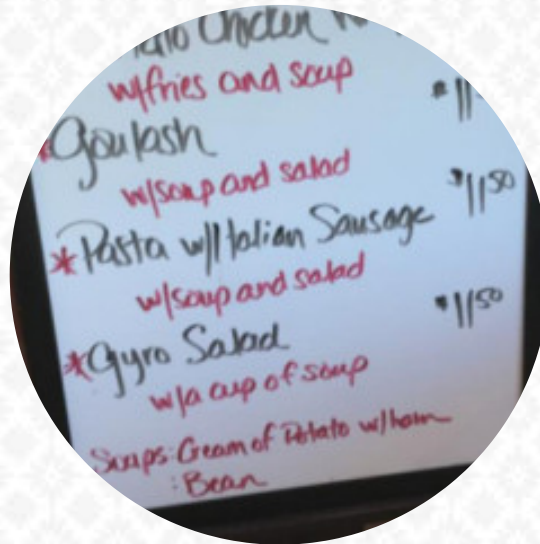 Chicken
w/fries and soup
*Goulash $11
w/soup and salad
*Pasta w/Italian Sausage $11.50
w/soup and salad
*Gyro Salad $11.50
w/a cup of soup
Soups: Cream of Potato w/ham
: Bean